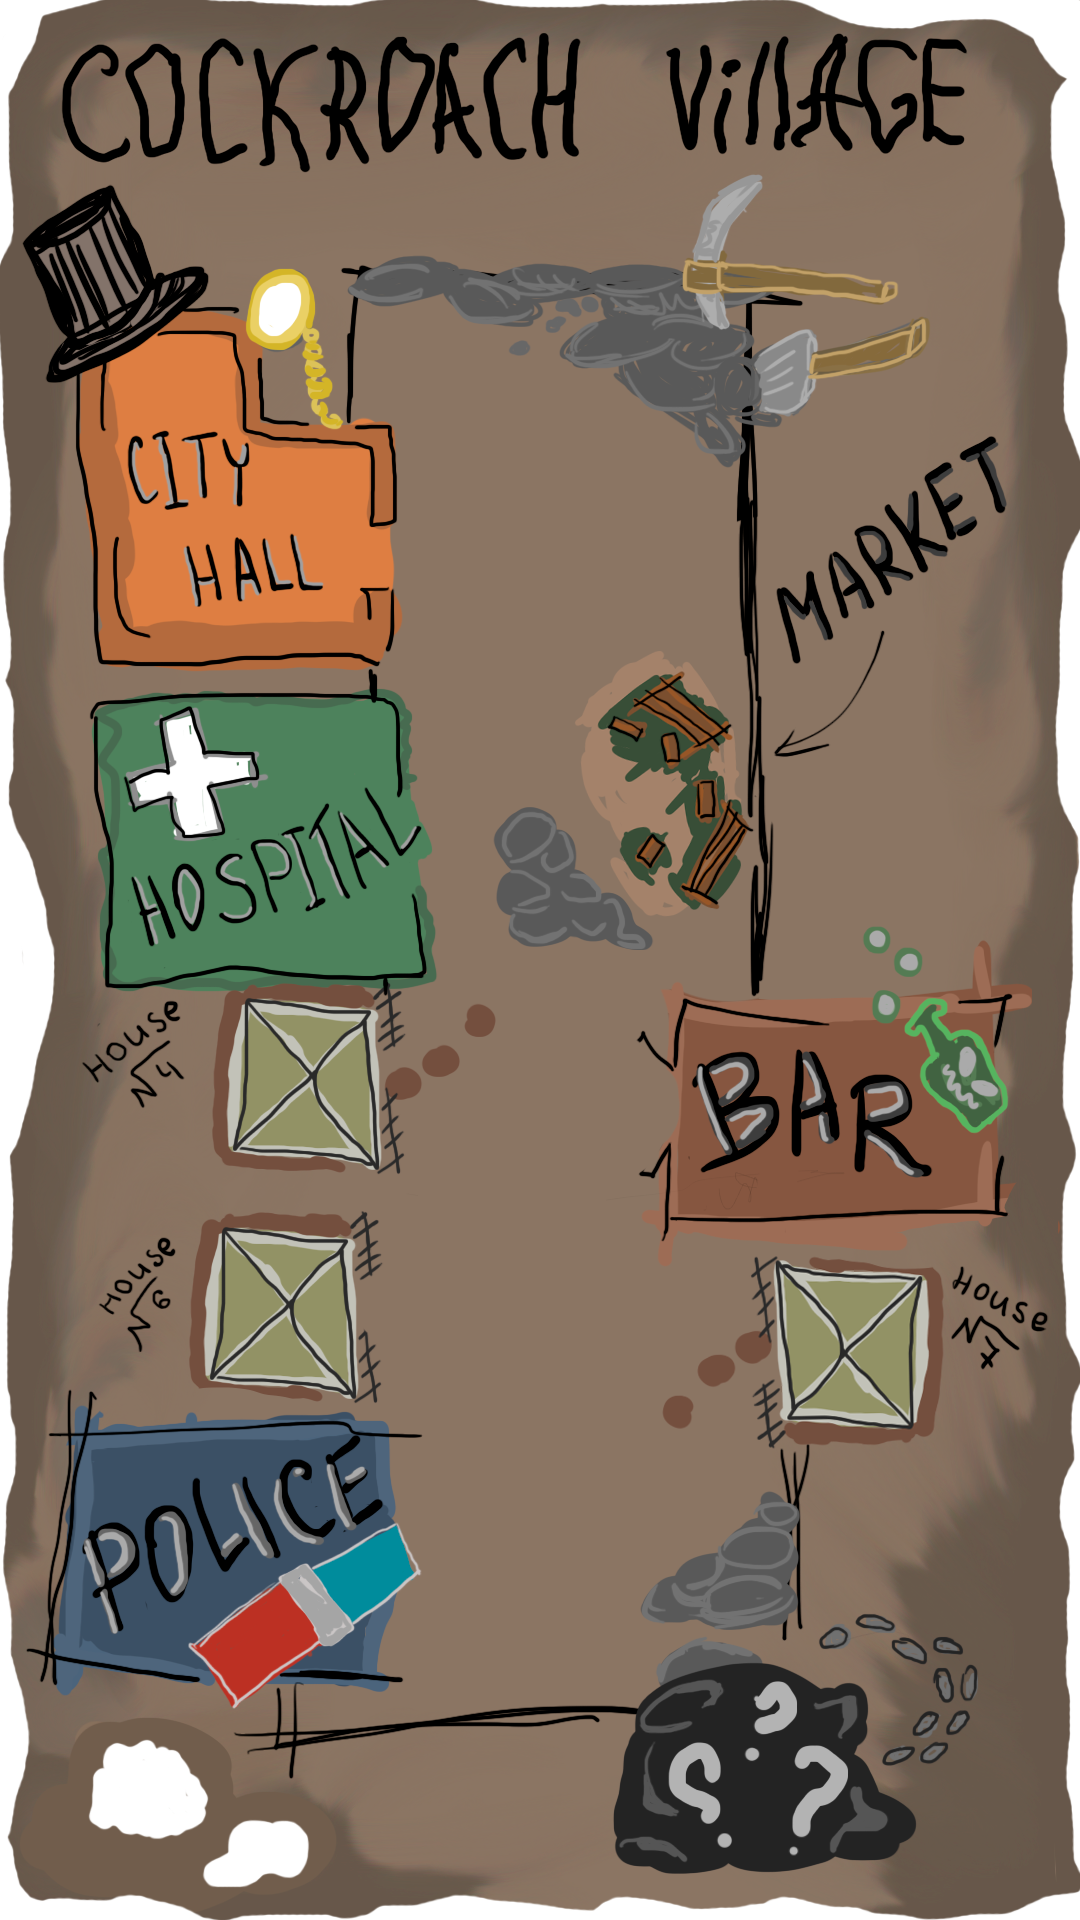 COCKROACH VillAGE
CITY
HALL
MARKET
HOSPITAL
HOUSE
№4
BAR
HOUSE
№6
HOUSE
№7
POLICE
? ? ?